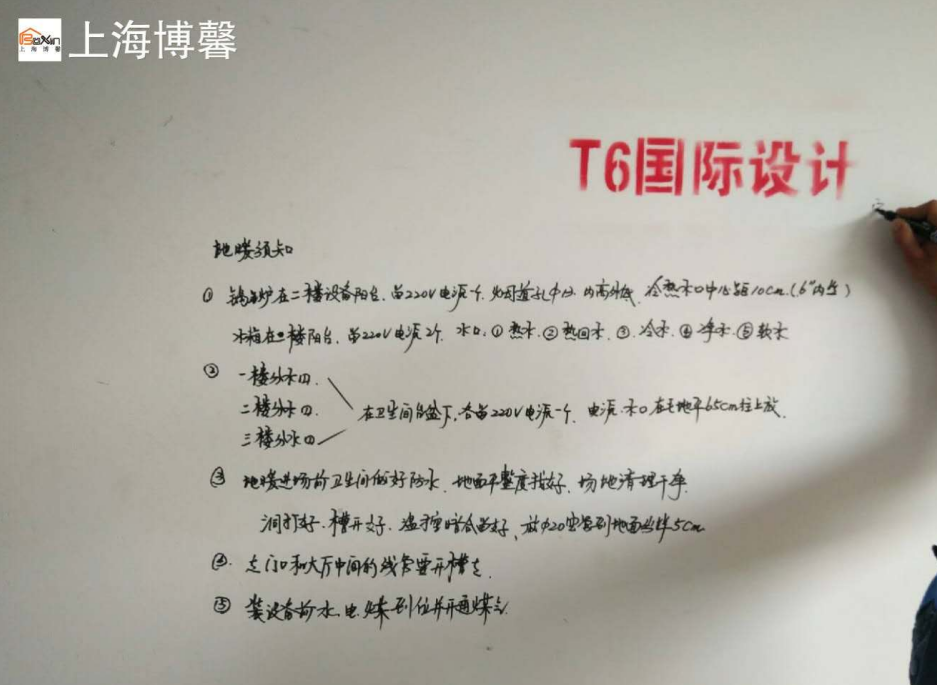 上海博馨
T6国际设计
地暖须知
① 锅炉在二楼设备阳台.留220V电源一个. 内高外低. 冷热水口中心距10cm.(6"内丝)
水箱在二楼阳台.留220V电源2个. 水口.①热水.②热回水.③.冷水.④净水.⑤软水
② 一楼分水口.
二楼分水口.
三楼分水口
在卫生间台盆下.各留220V电源一个. 电源.水口在毛地平65cm往上放.
③ 地暖进场前卫生间做好防水. 地面平整度找好. 场地清理干净.
洞打好.槽开好. 温控暗盒留好、放Φ20穿管到地面 5cm
④. 走门口和大厅中间的线管要开槽走.
⑤ 装设备前水.电.煤到位并开通煤气.